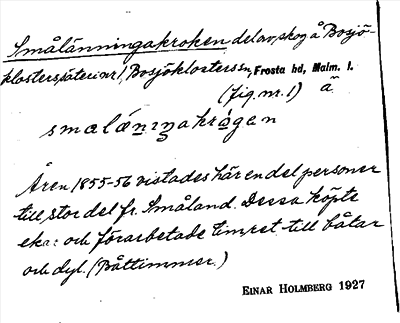 Smålänningakroken del av skog å Bosjö-
klosters säteri nr 1, Bosjöklosters sn, Frosta hd, Malm. l.
(fig. nr. 1) ä
småläniŋakrǫ́gen
Åren 1855-56 vistades här en del personer
till stor del fr. Småland. Dessa köpte
ekar och förarbetade timret till båtar
och dyl. (Båttimmer.)
EINAR HOLMBERG 1927